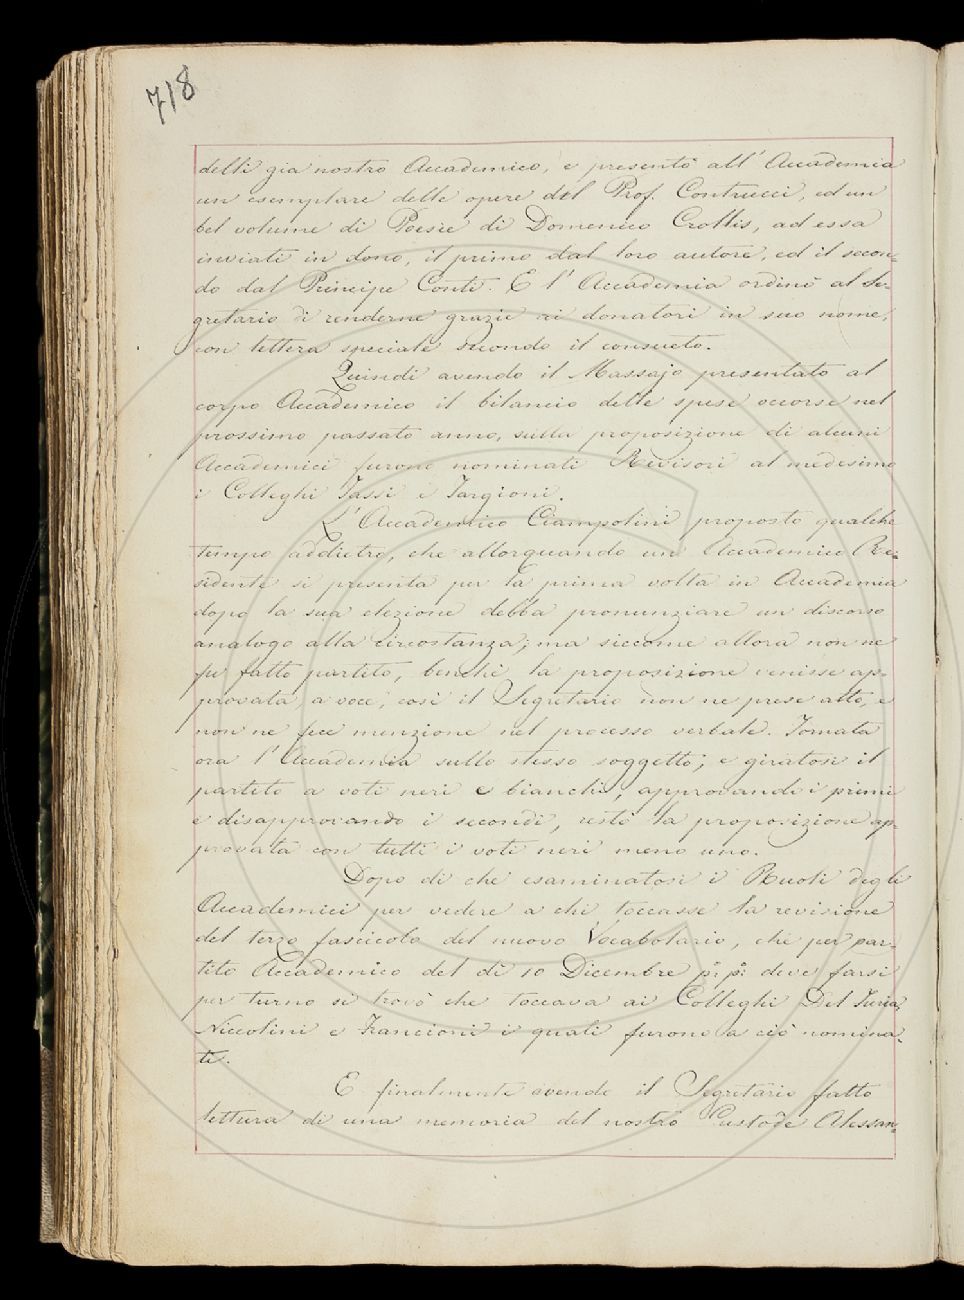 718
delli già nostro Accademico, e presentò all'Accademia
un esemplare delle opere del Prof. Contrucci, ed un
bel volume di Poesie di Domenico Crollis, ad essa
inviati in dono, il primo dal loro autore, ed il secon=
do dal Principe Conti. E l'Accademia ordinò al Se=
gretario di renderne grazie ai donatori in suo nome,
con lettera speciale secondo il consueto.
Quindi avendo il Massajo presentato al
corpo Accademico il bilancio delle spese occorse nel
prossimo passato anno, sulla proposizione di alcuni
Accademici furono nominati Revisori al medesimo
i Colleghi Tassi e Targioni.
L'Accademico Ciampolini propose qualche
tempo addietro, che allorquando un Accademico Re=
sidente si presenta per la prima volta in Accademia
dopo la sua elezione debba pronunziare un discorso
analogo alla circostanza; ma siccome allora non ne
fu fatto partito, benchè la proposizione venisse ap=
provata, a voce, così il Segretario non ne prese atto, e
non ne fece menzione nel processo verbale. Tornata
ora l'Accademia sullo stesso soggetto; e giratosi il
partito a voti neri e bianchi, approvando i primi
e disapprovando i secondi, restò la proposizione ap=
provata con tutti i voti neri meno uno.
Dopo di che esaminatosi i Ruoli degli
Accademici per vedere a chi toccasse la revisione
del terzo fascicolo del nuovo Vocabolario, che per par=
tito Accademico del dì 10 Dicembre p.º p.º deve farsi
per turno si trovò che toccava ai Colleghi Del Furia,
Niccolini e Francioni i quali furono a ciò nomina=
ti.
E finalmente avendo il Segretario fatto
lettura di una memoria del nostro Custode Alessan=